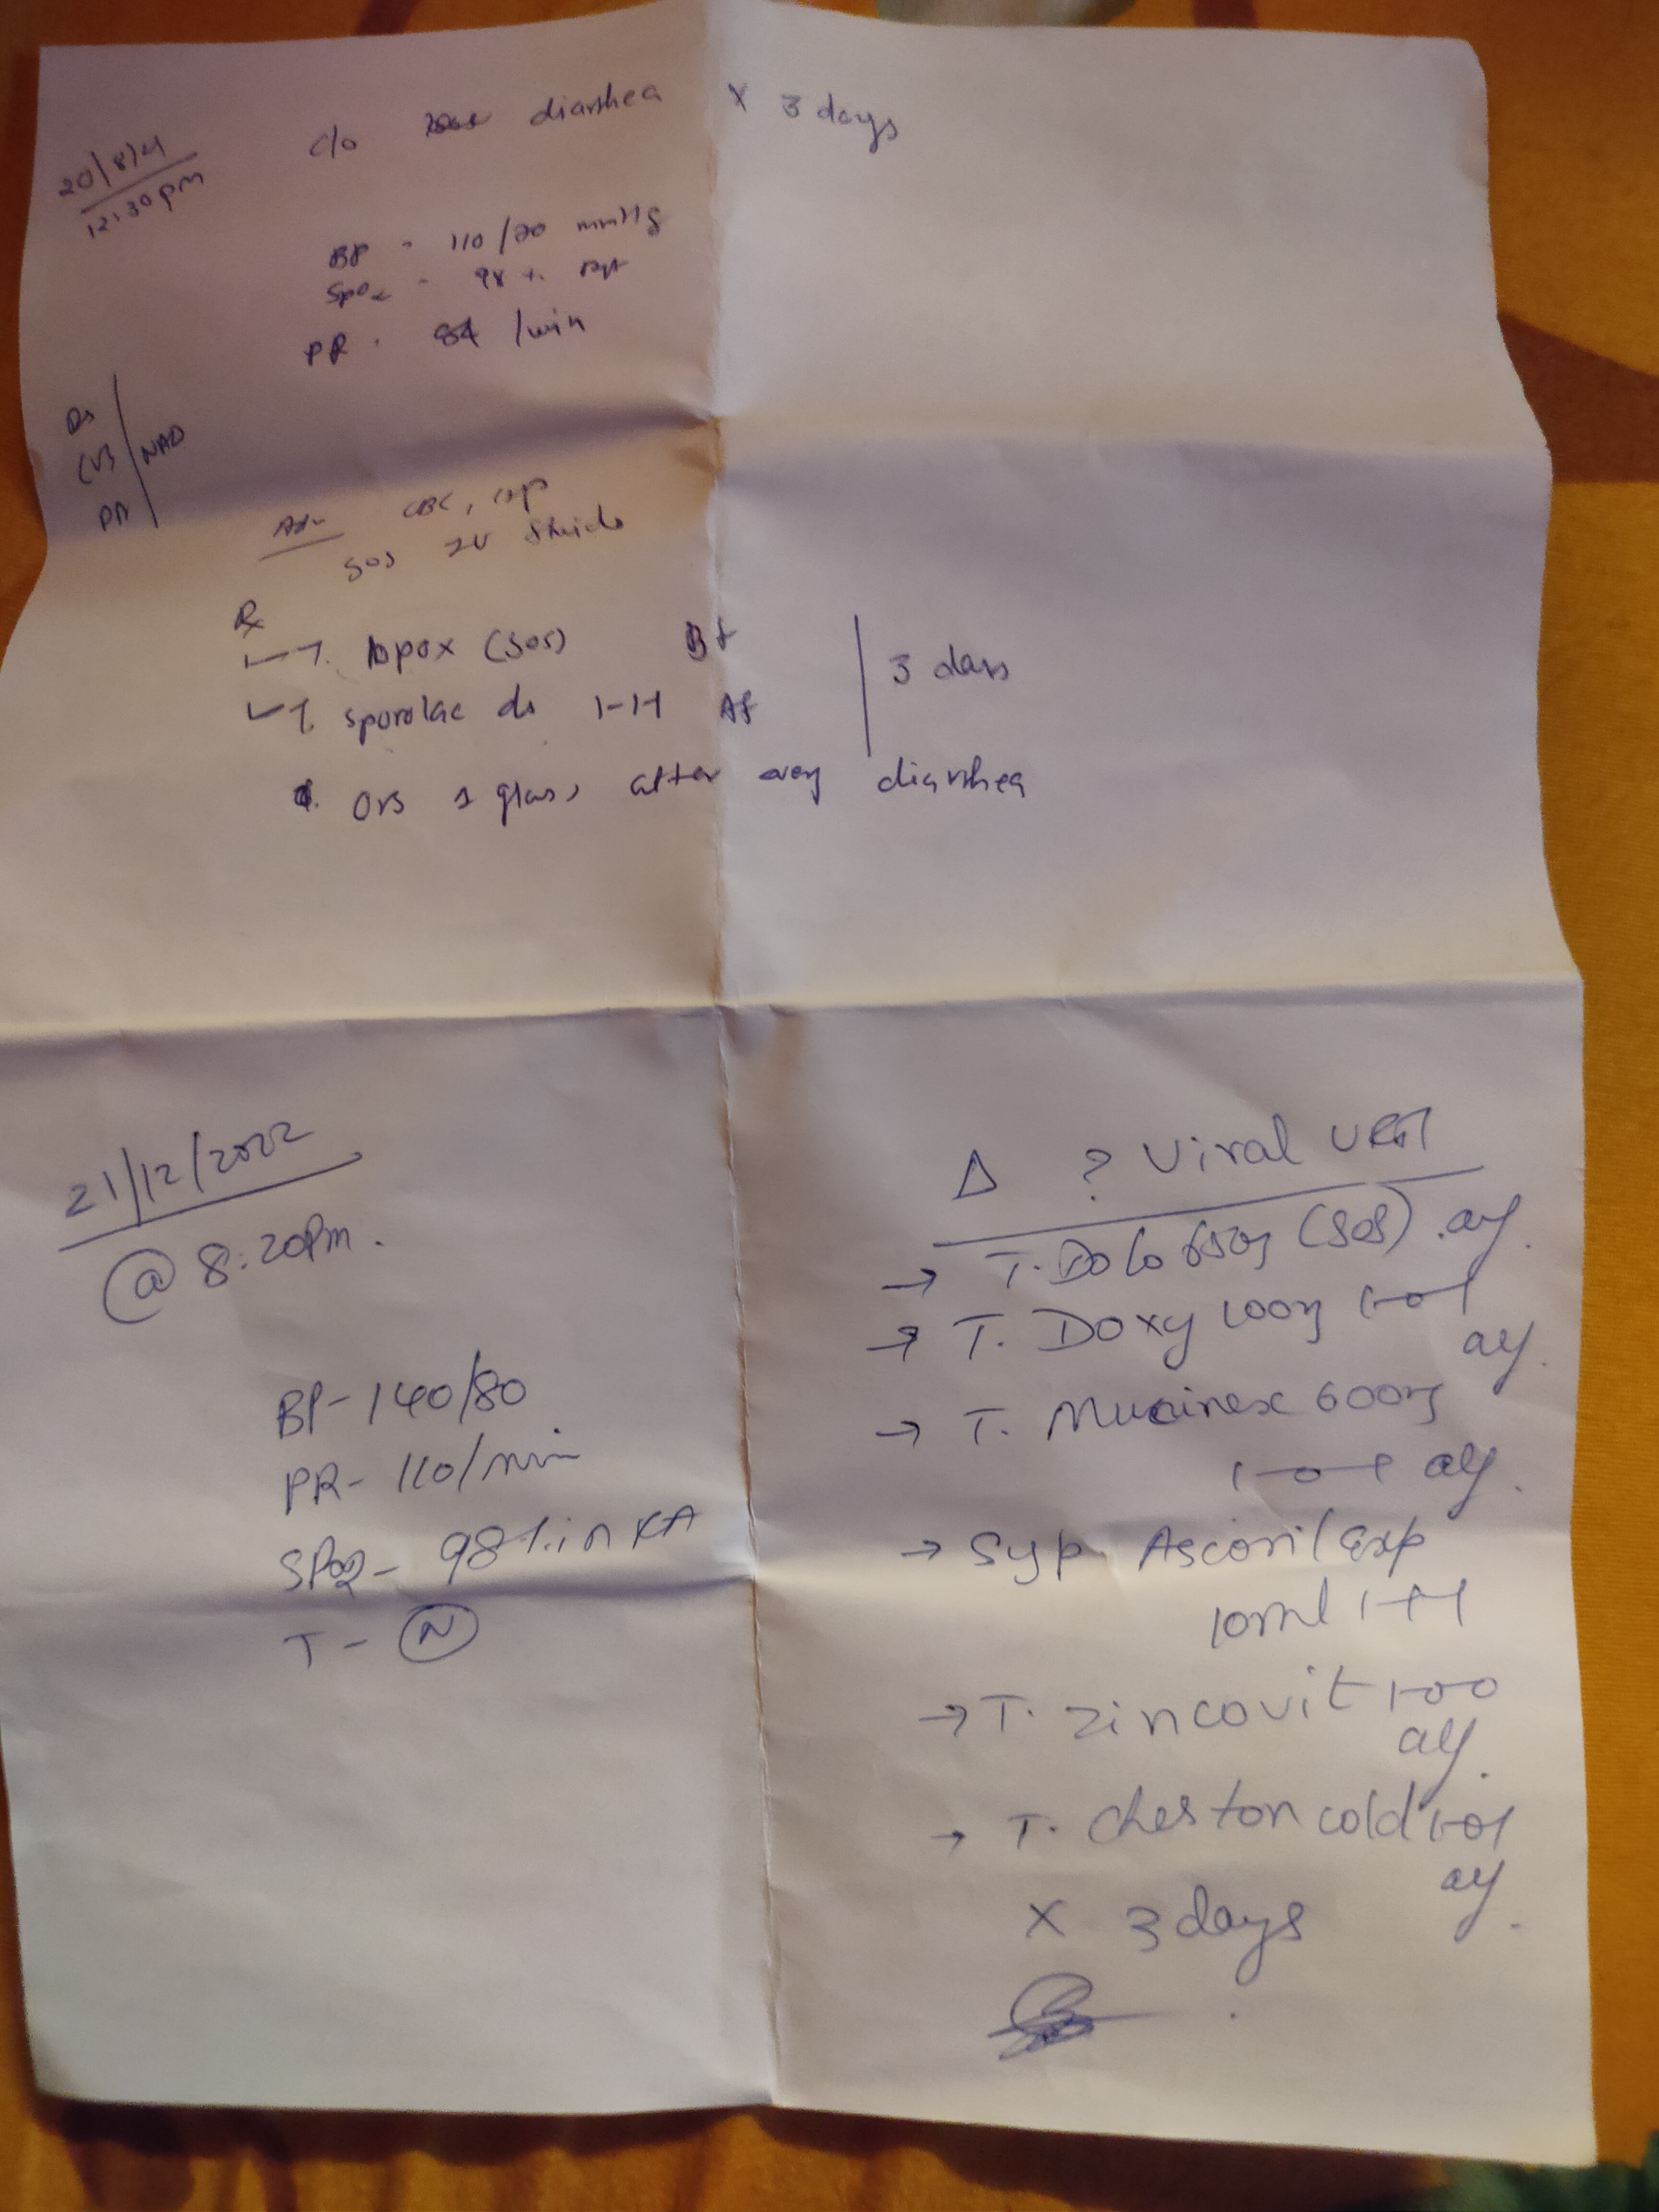 20/8/21
12:30pm
c/o diarrhea x 3 days
BP - 110/70 mmHg
SpO2 - 98 %
PR - 84 /min
RS
CVS
PA
NAD
Adv CBC, CRP
SOS IV fluids
Rx
T. lopox (SOS) Bf
T. sporolac ds 1-1-1 Af
3 days
ORS 1 glass, after every diarrhea
21/12/2022
@ 8:20pm.
BP- 140/80
PR- 110/min
SPO2- 98% in RA
T- N
Δ ? Viral URTI
→ T. Dolo 650mg (SOS) . af.
→ T. Doxy 100mg 1-0-1
af.
→ T. Mucinex 600mg
1-0-1 af.
→ Syp. Ascoril Exp
10ml 1-1-1
→ T. zincovit 1-0-0
af.
→ T. Cheston cold 1-0-1
af.
x 3 days